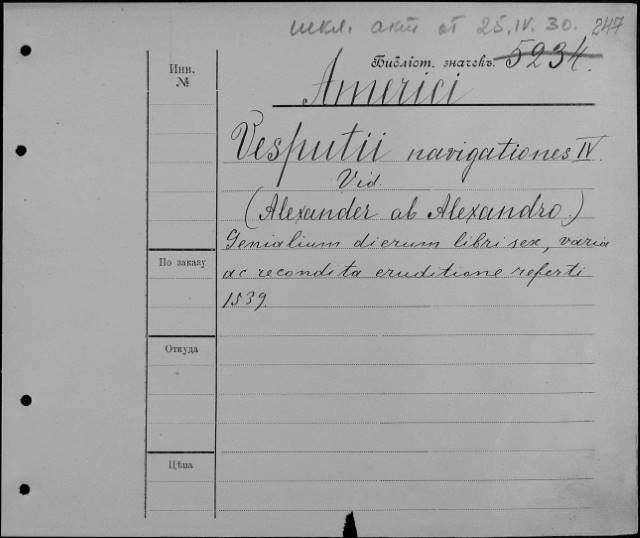 искл. акт от 25.IV.30. 247
Библіот. значекъ. 5234.
Инв.
№
Americi
Vesputii navigationes IV.
Vid.
(Alexander ab Alexandro.)
Genialium dierum libri sex, varia
ac recondita eruditione referti
1539.
По заказу
Откуда
Цѣна